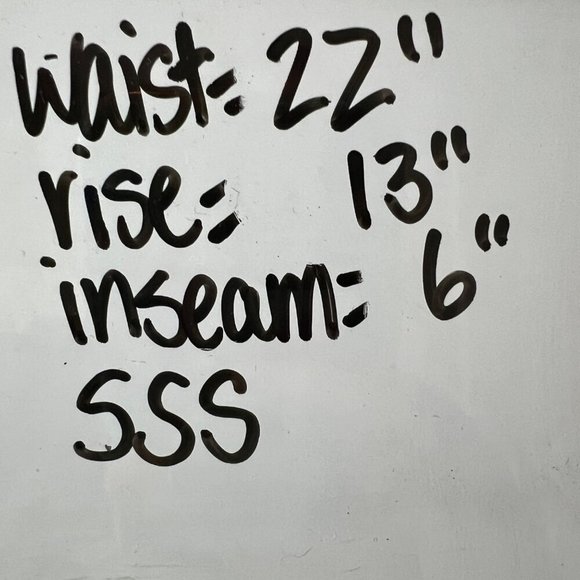 waist= 22"
rise= 13"
inseam= 6"
SSS